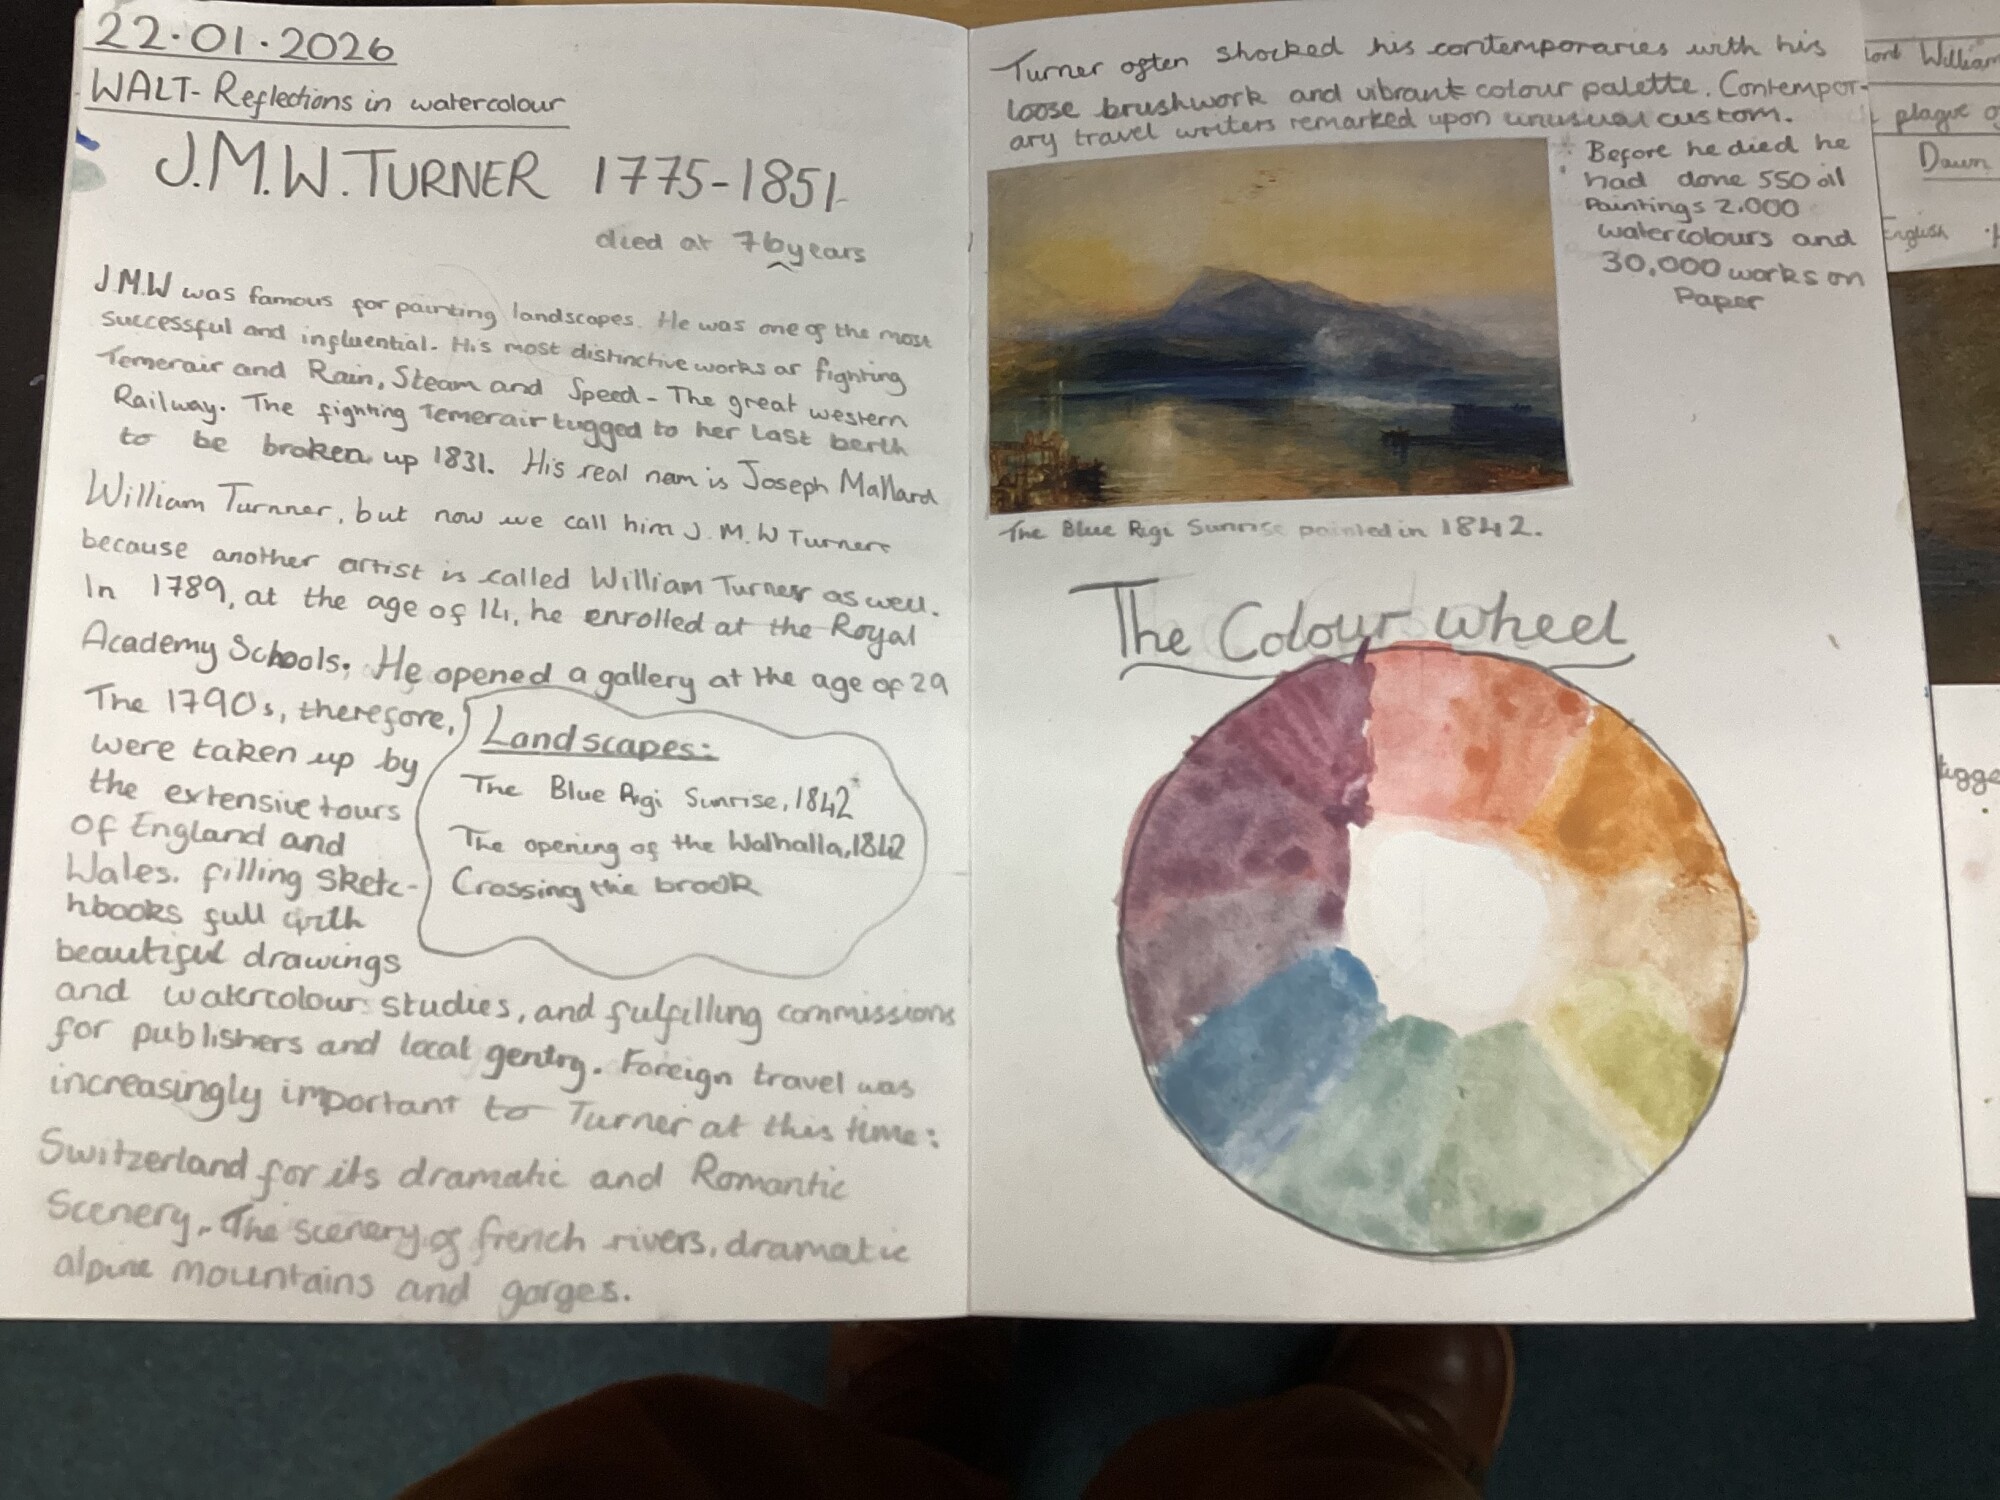 22.01.2026
WALT- Reflections in watercolour
J.M.W. TURNER 1775-1851
died at 76 years
J.M.W was famous for painting landscapes. He was one of the most
successful and influential. His most distinctive works ar fighting
Temerair and Rain, Steam and Speed - The great western
Railway. The fighting Temerair tugged to her last berth
to be broken up 1831. His real nam is Joseph Mallard
William Turnner, but now we call him J.M.W Turner
because another artist is called William Turner as well.
In 1789, at the age of 14, he enrolled at the Royal
Academy Schools. He opened a gallery at the age of 29
The 1790s, therefore,
were taken up by
the extensive tours
of England and
Wales. filling sketc-
hbooks full with
beautiful drawings
Landscapes:
The Blue Rigi Sunrise, 1842*
The opening of the Walhalla, 1842
Crossing the brook
and watercolour studies, and fulfilling commissions
for publishers and local gentry. Foreign travel was
increasingly important to Turner at this time:
Switzerland for its dramatic and Romantic
Scenery. The scenery of french rivers, dramatic
alpine mountains and gorges.
Turner often shocked his contemporaries with his
loose brushwork and vibrant colour palette. Contempor-
ary travel writers remarked upon unusual custom.
* Before he died he
had done 550 oil
Paintings 2.000
watercolours and
30,000 works on
Paper
The Blue Rigi Sunrise painted in 1842.
The Colour wheel
William
plague
Dawn
English